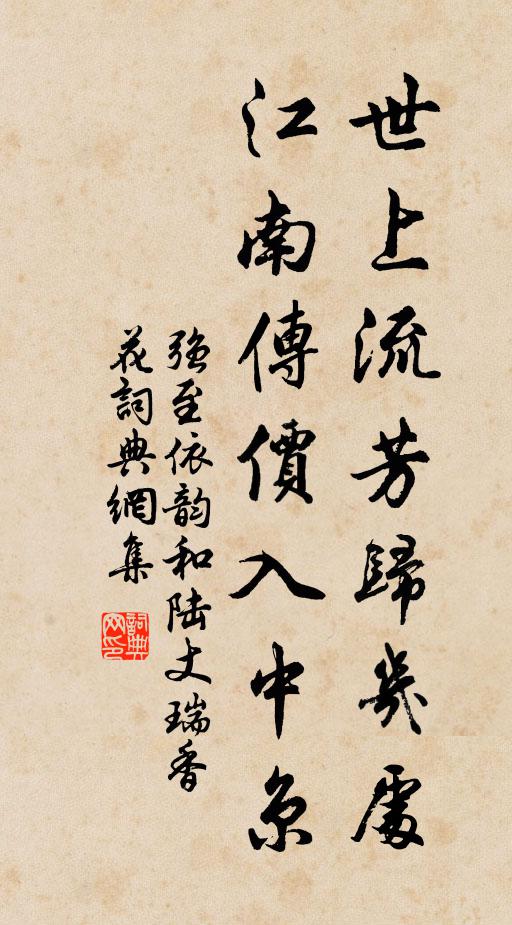 世上流芳歸幾處
江南傳價入中京
强至依韵和陆丈瑞香
花詞典網集
詞典网印